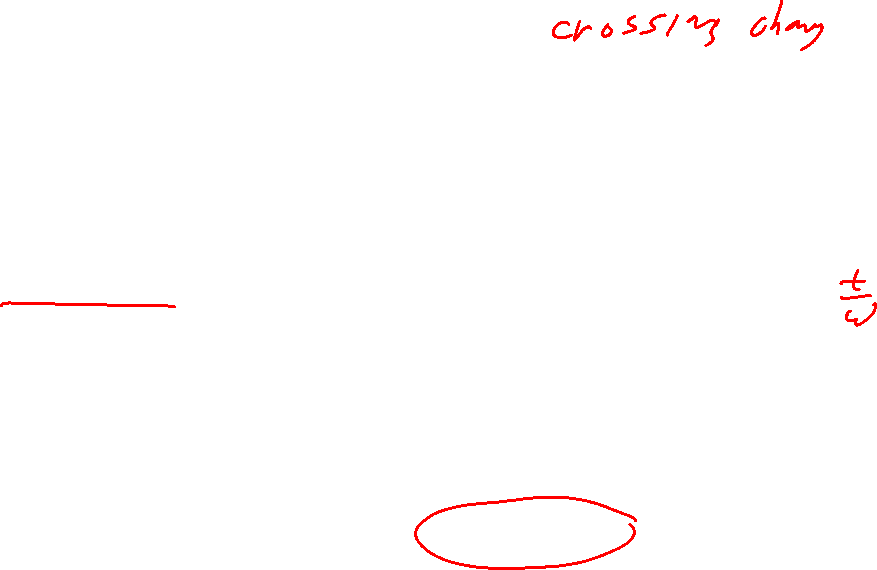 crossing chang
t/w